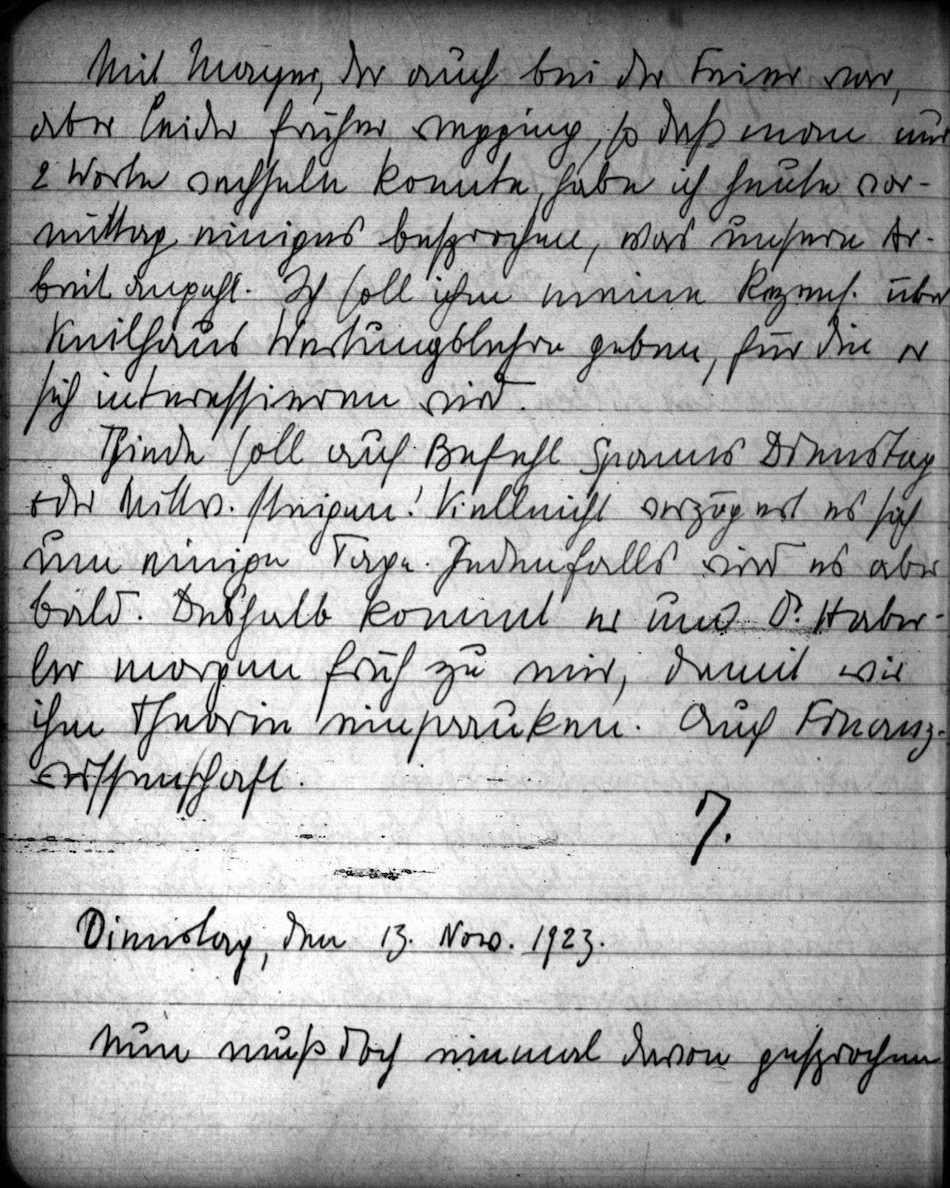 Mit Mayer, der auch bei der Feier war,
aber leider früher wegging, so daß man nur
2 Worte wechseln konnte, habe ich heute vor-
mittag einiges besprochen, was unsere Ar-
beit angeht. Ich soll ihm meine Rezens. über
Keilhaus Wertungslehre geben, für die er
sich interessieren wird.
Thiede soll auf Befehl Spanns Dienstag
oder Mittw. steigen! Vielleicht verzögert es sich
um einige Tage. Jedenfalls wird es aber
bald. Deshalb kommt er und D. Haber-
ler morgen früh zu mir, damit wir
ihm Theorie einpauken. Auch Finanz-
wissenschaft.
7.
Dienstag, den 13. Nov. 1923.
Nun muß doch einmal davon gesprochen